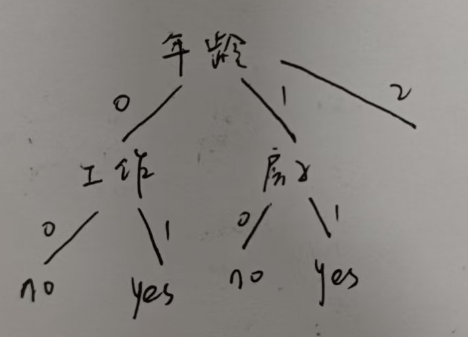 年龄
0 1 2
工作 房子
0 1 0 1
no yes no yes